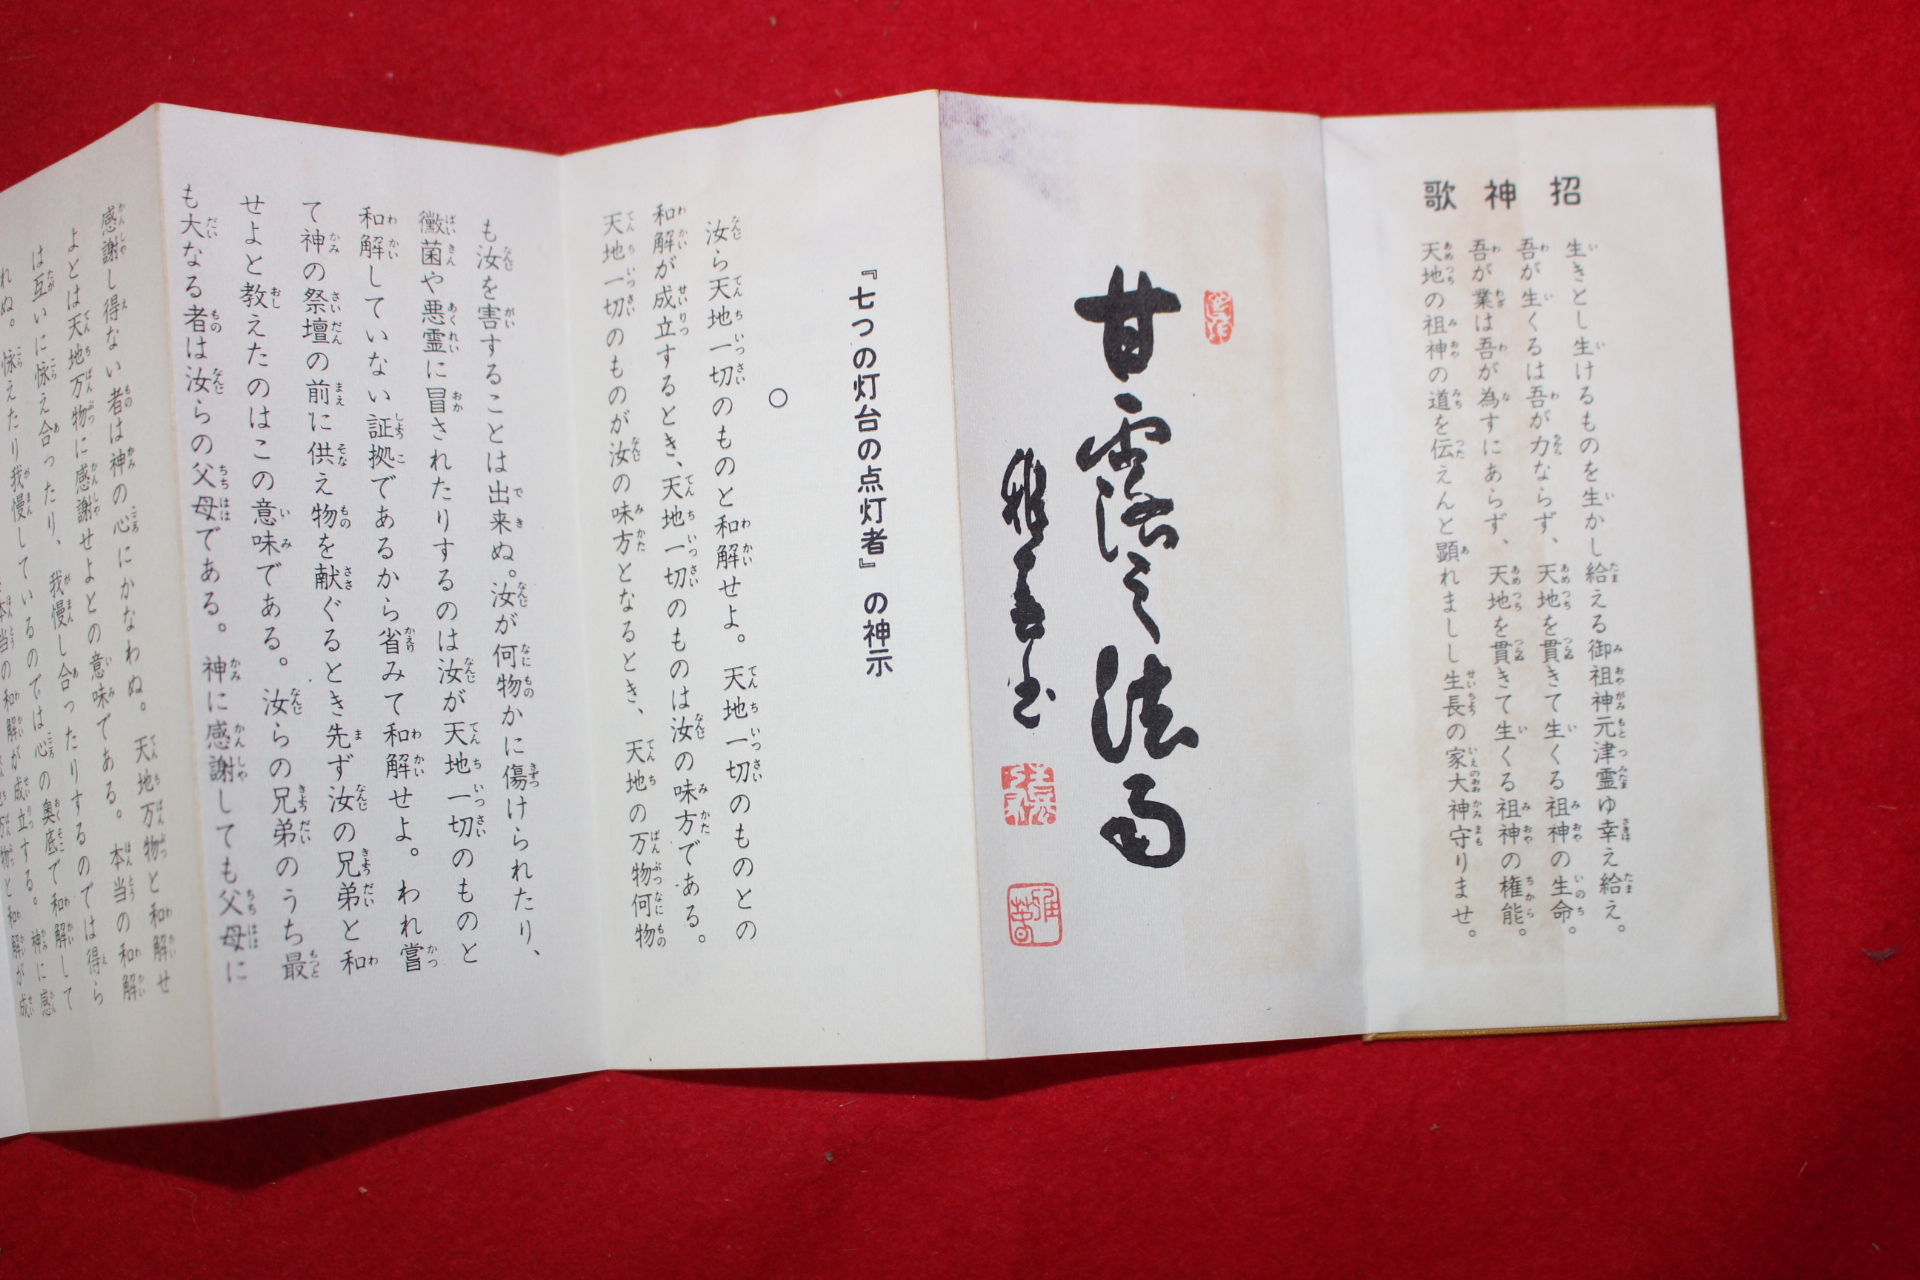 招神歌
生きとし生けるものを生かし給える御祖神元津霊ゆ幸え給え。
吾が生くるは吾が力ならず、天地を貫きて生くる祖神の生命。
吾が業は吾が為すにあらず、天地を貫きて生くる祖神の権能。
天地の祖神の道を伝えんと顕れましし生長の家大神守りませ。
甘露之法雨
雅春書
『七つの灯台の点灯者』の神示
○
汝ら天地一切のものと和解せよ。天地一切のものとの
和解が成立するとき、天地一切のものは汝の味方である。
天地一切のものが汝の味方となるとき、天地の万物何物
も汝を害することは出来ぬ。汝が何物かに傷けられたり、
黴菌や悪霊に冒されたりするのは汝が天地一切のものと
和解していない証拠であるから省みて和解せよ。われ嘗
て神の祭壇の前に供え物を献ぐるとき先ず汝の兄弟と和
せよと教えたのはこの意味である。汝らの兄弟のうち最
も大なる者は汝らの父母である。神に感謝しても父母に
感謝し得ない者は神の心にかなわぬ。天地万物と和解せ
よとは天地万物に感謝せよとの意味である。本当の和解
は互いに怺え合ったり、我慢し合ったりするのでは得ら
れぬ。怺えたり我慢しているのでは心の奥底で和解して
本当の和解が成立する。神に感